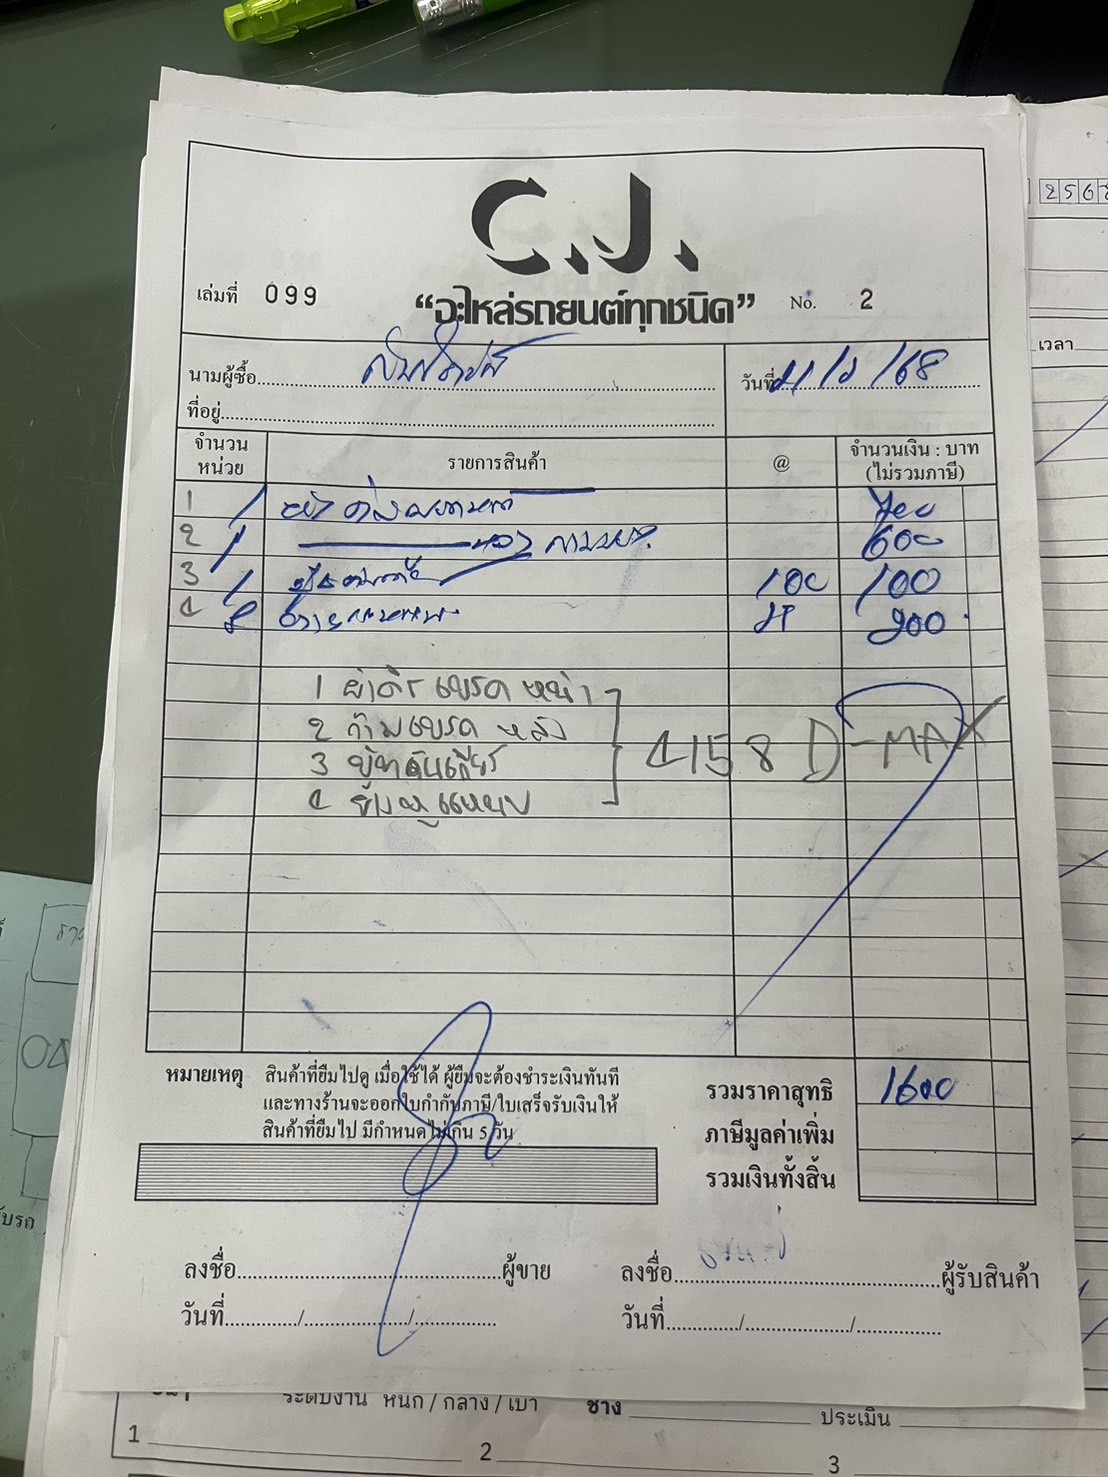 2568
C.J.
เล่มที่ 099
"อะไหล่รถยนต์ทุกชนิด"
No. 2
เวลา
นามผู้ซื้อ
วันที่ /68
ที่อยู่
จำนวน
หน่วย
รายการสินค้า
@
จำนวนเงิน : บาท
(ไม่รวมภาษี)
1
2 600
3 100 100
4 200
1 ผ้าดิสเบรค หน้า
2 ก้ามเบรค หลัง
3 บู๊ชคันเกียร์
4 ยางหูแหนบ
4158 D-MAX
หมายเหตุ สินค้าที่ยืมไปดู เมื่อใช้ได้ ผู้ยืมจะต้องชำระเงินทันที
และทางร้านจะออกใบกำกับภาษี/ใบเสร็จรับเงินให้
สินค้าที่ยืมไป มีกำหนดไม่เกิน 5 วัน
รวมราคาสุทธิ 1600
ภาษีมูลค่าเพิ่ม
รวมเงินทั้งสิ้น
ลงชื่อ ผู้ขาย
วันที่ / /
ลงชื่อ ผู้รับสินค้า
วันที่ / /
ระดับงาน หนัก / กลาง / เบา ช่าง
ประเมิน
1
2
3